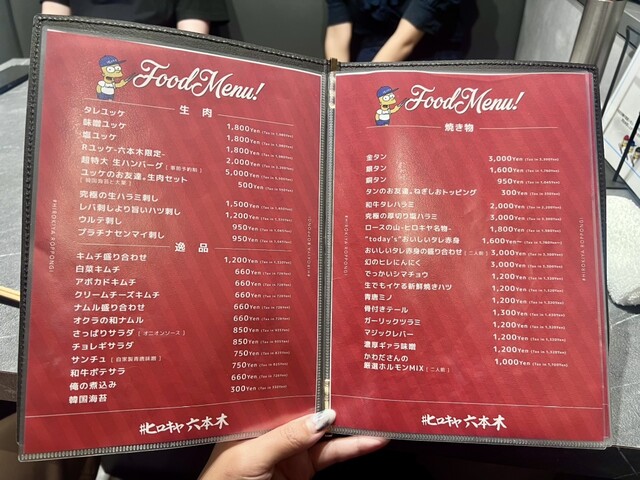 Food Menu!
生肉
タレユッケ 1,800Yen
味噌ユッケ 1,800Yen
塩ユッケ 1,800Yen
Rユッケ-六本木限定- 2,000Yen
超特大 生ハンバーグ [事前予約制] 5,000Yen
ユッケのお友達。生肉セット 500Yen
[韓国海苔と大葉]
究極の生ハラミ刺し 1,500Yen
レバ刺しより旨いハツ刺し 1,200Yen
ウルテ刺し 950Yen
プラチナセンマイ刺し 950Yen
逸品
キムチ盛り合わせ 1,200Yen
白菜キムチ 660Yen
アボカドキムチ 660Yen
クリームチーズキムチ 660Yen
ナムル盛り合わせ 660Yen
オクラの和ナムル 660Yen
さっぱりサラダ [オニオンソース] 850Yen
チョレギサラダ 850Yen
サンチュ [自家製馬鹿味噌] 750Yen
和牛ポテサラ 750Yen
俺の煮込み 660Yen
韓国海苔 300Yen
#ヒロキヤ六本木
#HIROKIYA ROPPONGI
Food Menu!
焼き物
金タン 3,000Yen
銀タン 1,600Yen
銅タン 950Yen
タンのお友達。ねぎしおトッピング 300Yen
和牛タレハラミ 2,000Yen
究極の厚切り塩ハラミ 3,000Yen
ロースの山-ヒロキヤ名物- 1,800Yen
"today's"おいしいタレ赤身 1,600Yen〜
おいしいタレ赤身の盛り合わせ [二人前] 3,000Yen
幻のヒレにんにく 3,000Yen
でっかいシマチョウ 1,200Yen
生でもイケる新鮮焼きハツ 1,200Yen
青唐ミノ 1,200Yen
骨付きテール 1,300Yen
ガーリックツラミ 1,200Yen
マジックレバー 1,200Yen
濃厚ギャラ味噌 1,200Yen
かわださんの
厳選ホルモンMIX [二人前] 1,000Yen
#ヒロキヤ六本木
#HIROKIYA ROPPONGI